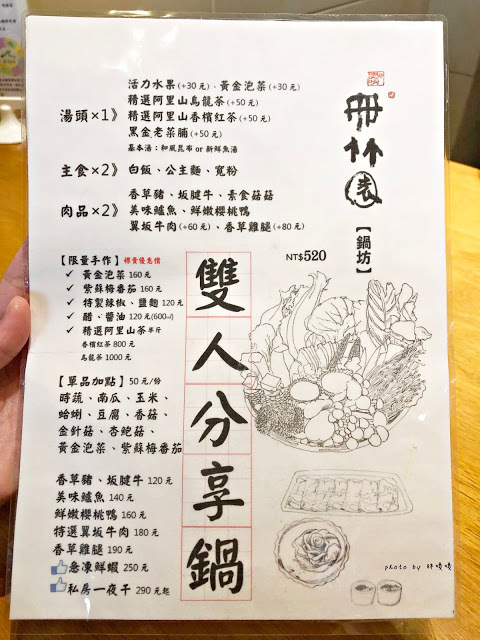 湯頭×1》
活力水果(+30元)、黃金泡菜(+30元)
精選阿里山烏龍茶(+50元)
精選阿里山香檳紅茶(+50元)
黑金老菜脯(+50元)
基本湯:和風昆布 or 新鮮魚湯
主食×2》 白飯、公主麵、寬粉
肉品×2》
香草豬、坂腱牛、素食菇菇
美味鱸魚、鮮嫩櫻桃鴨
翼坂牛肉(+60元)、香草雞腿(+80元)
【鍋坊】
NT$520
雙人分享鍋
【限量手作】
✓ 黃金泡菜 160元
✓ 紫蘇梅番茄 160元
✓ 特製辣椒、鹽麴 120元
✓ 醋、醬油 120元(600ml)
✓ 精選阿里山茶半斤
香檳紅茶 800元
烏龍茶 1000元
【單品加點】50元/份
時蔬、南瓜、玉米、
蛤蜊、豆腐、香菇、
金針菇、杏鮑菇、
黃金泡菜、紫蘇梅番茄
香草豬、坂腱牛 120元
美味鱸魚 140元
鮮嫩櫻桃鴨 160元
特選翼坂牛肉 180元
香草雞腿 190元
急凍鮮蝦 250元
私房一夜干 290元起
photo by